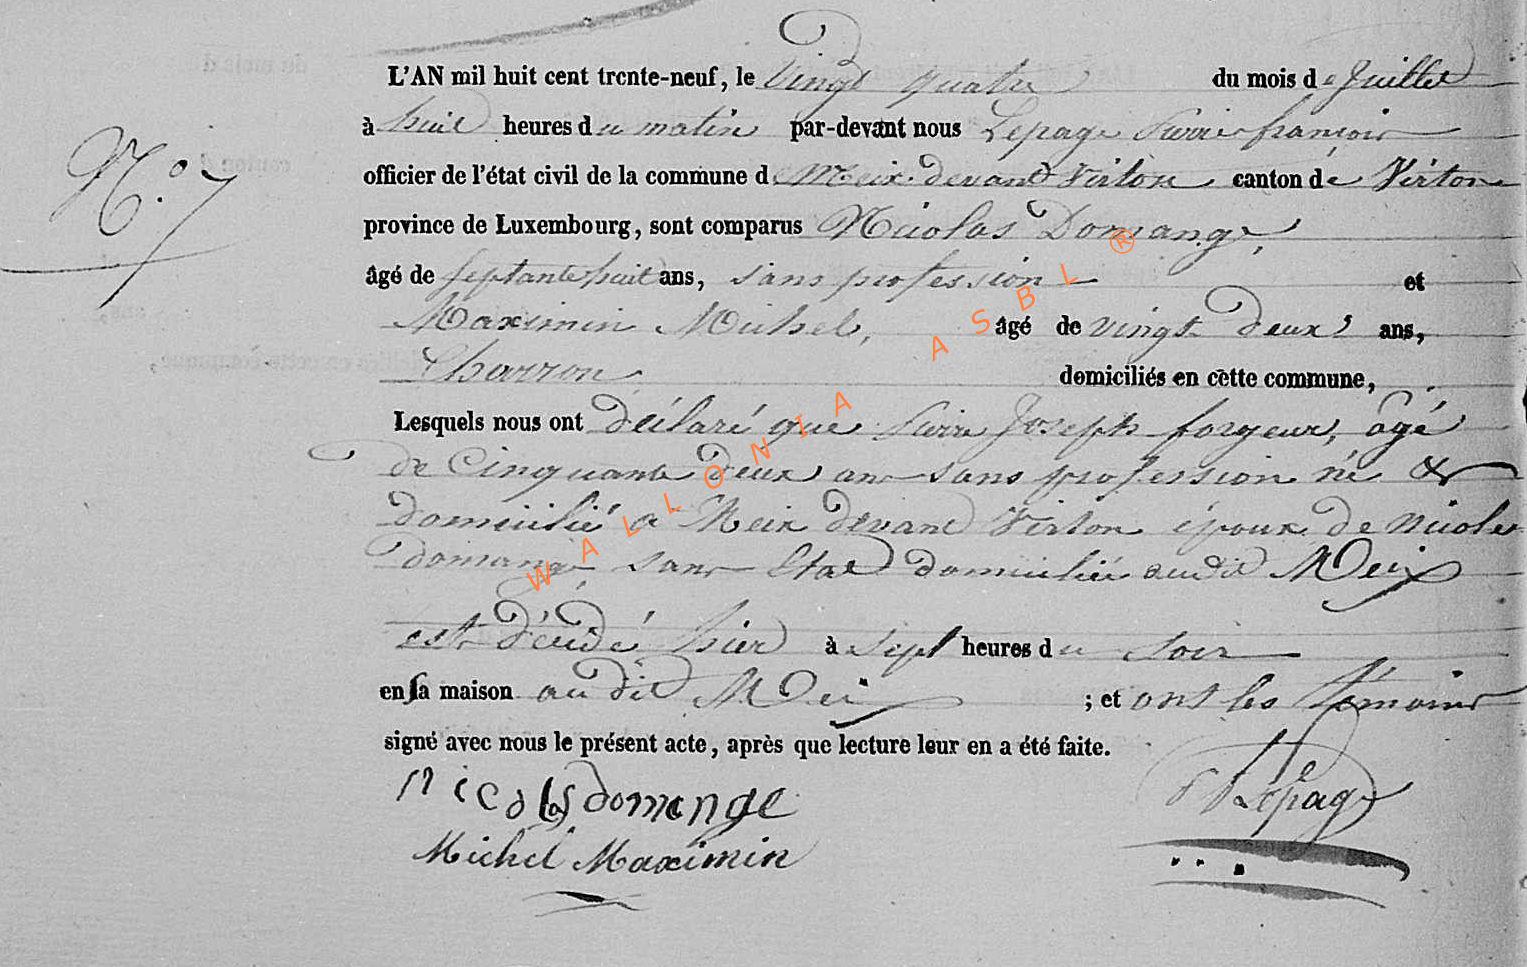 L'AN mil huit cent trente-neuf, le Vingt quatre du mois de Juillet
à huit heures du matin par-devant nous Lepage Pierre françois
officier de l'état civil de la commune de Meix devant Virton canton de Virton
province de Luxembourg, sont comparus Nicolas Domange,
âgé de septante huit ans, sans profession et
Maximin Michel, âgé de vingt deux ans,
Charron domiciliés en cette commune,
Lesquels nous ont déclaré que Pierre Joseph forgeur, âgé
de Cinquante deux ans sans profession né &
domicilié a Meix devant Virton époux de Nicole
domange sans Etat domiciliée audit Meix
est décédé hier à sept heures du soir
en sa maison audit Meix ; et ont les témoins
signé avec nous le présent acte, après que lecture leur en a été faite.
nicolas domange
Michel Maximin
Lepage
N.° 7
WALLONIA ASBL ®